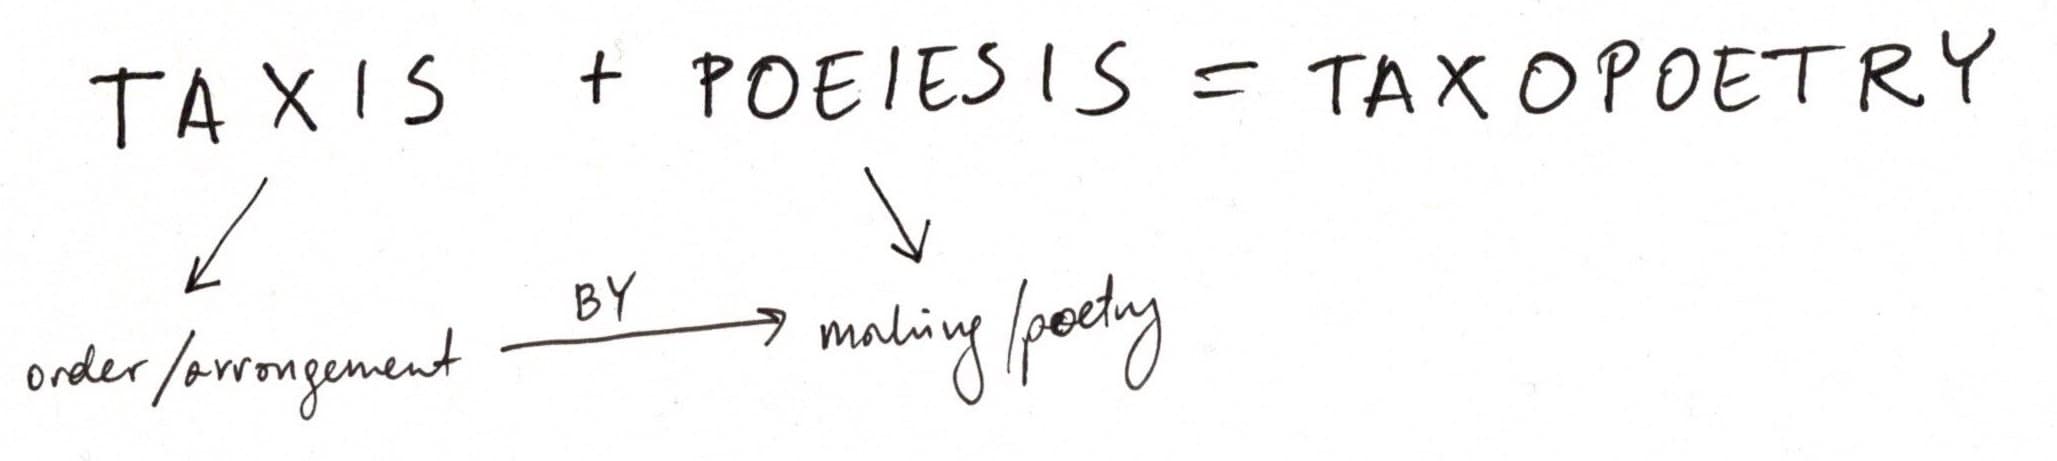 TAXIS + POEIESIS = TAXOPOETRY
BY
order/arrangement making/poetry